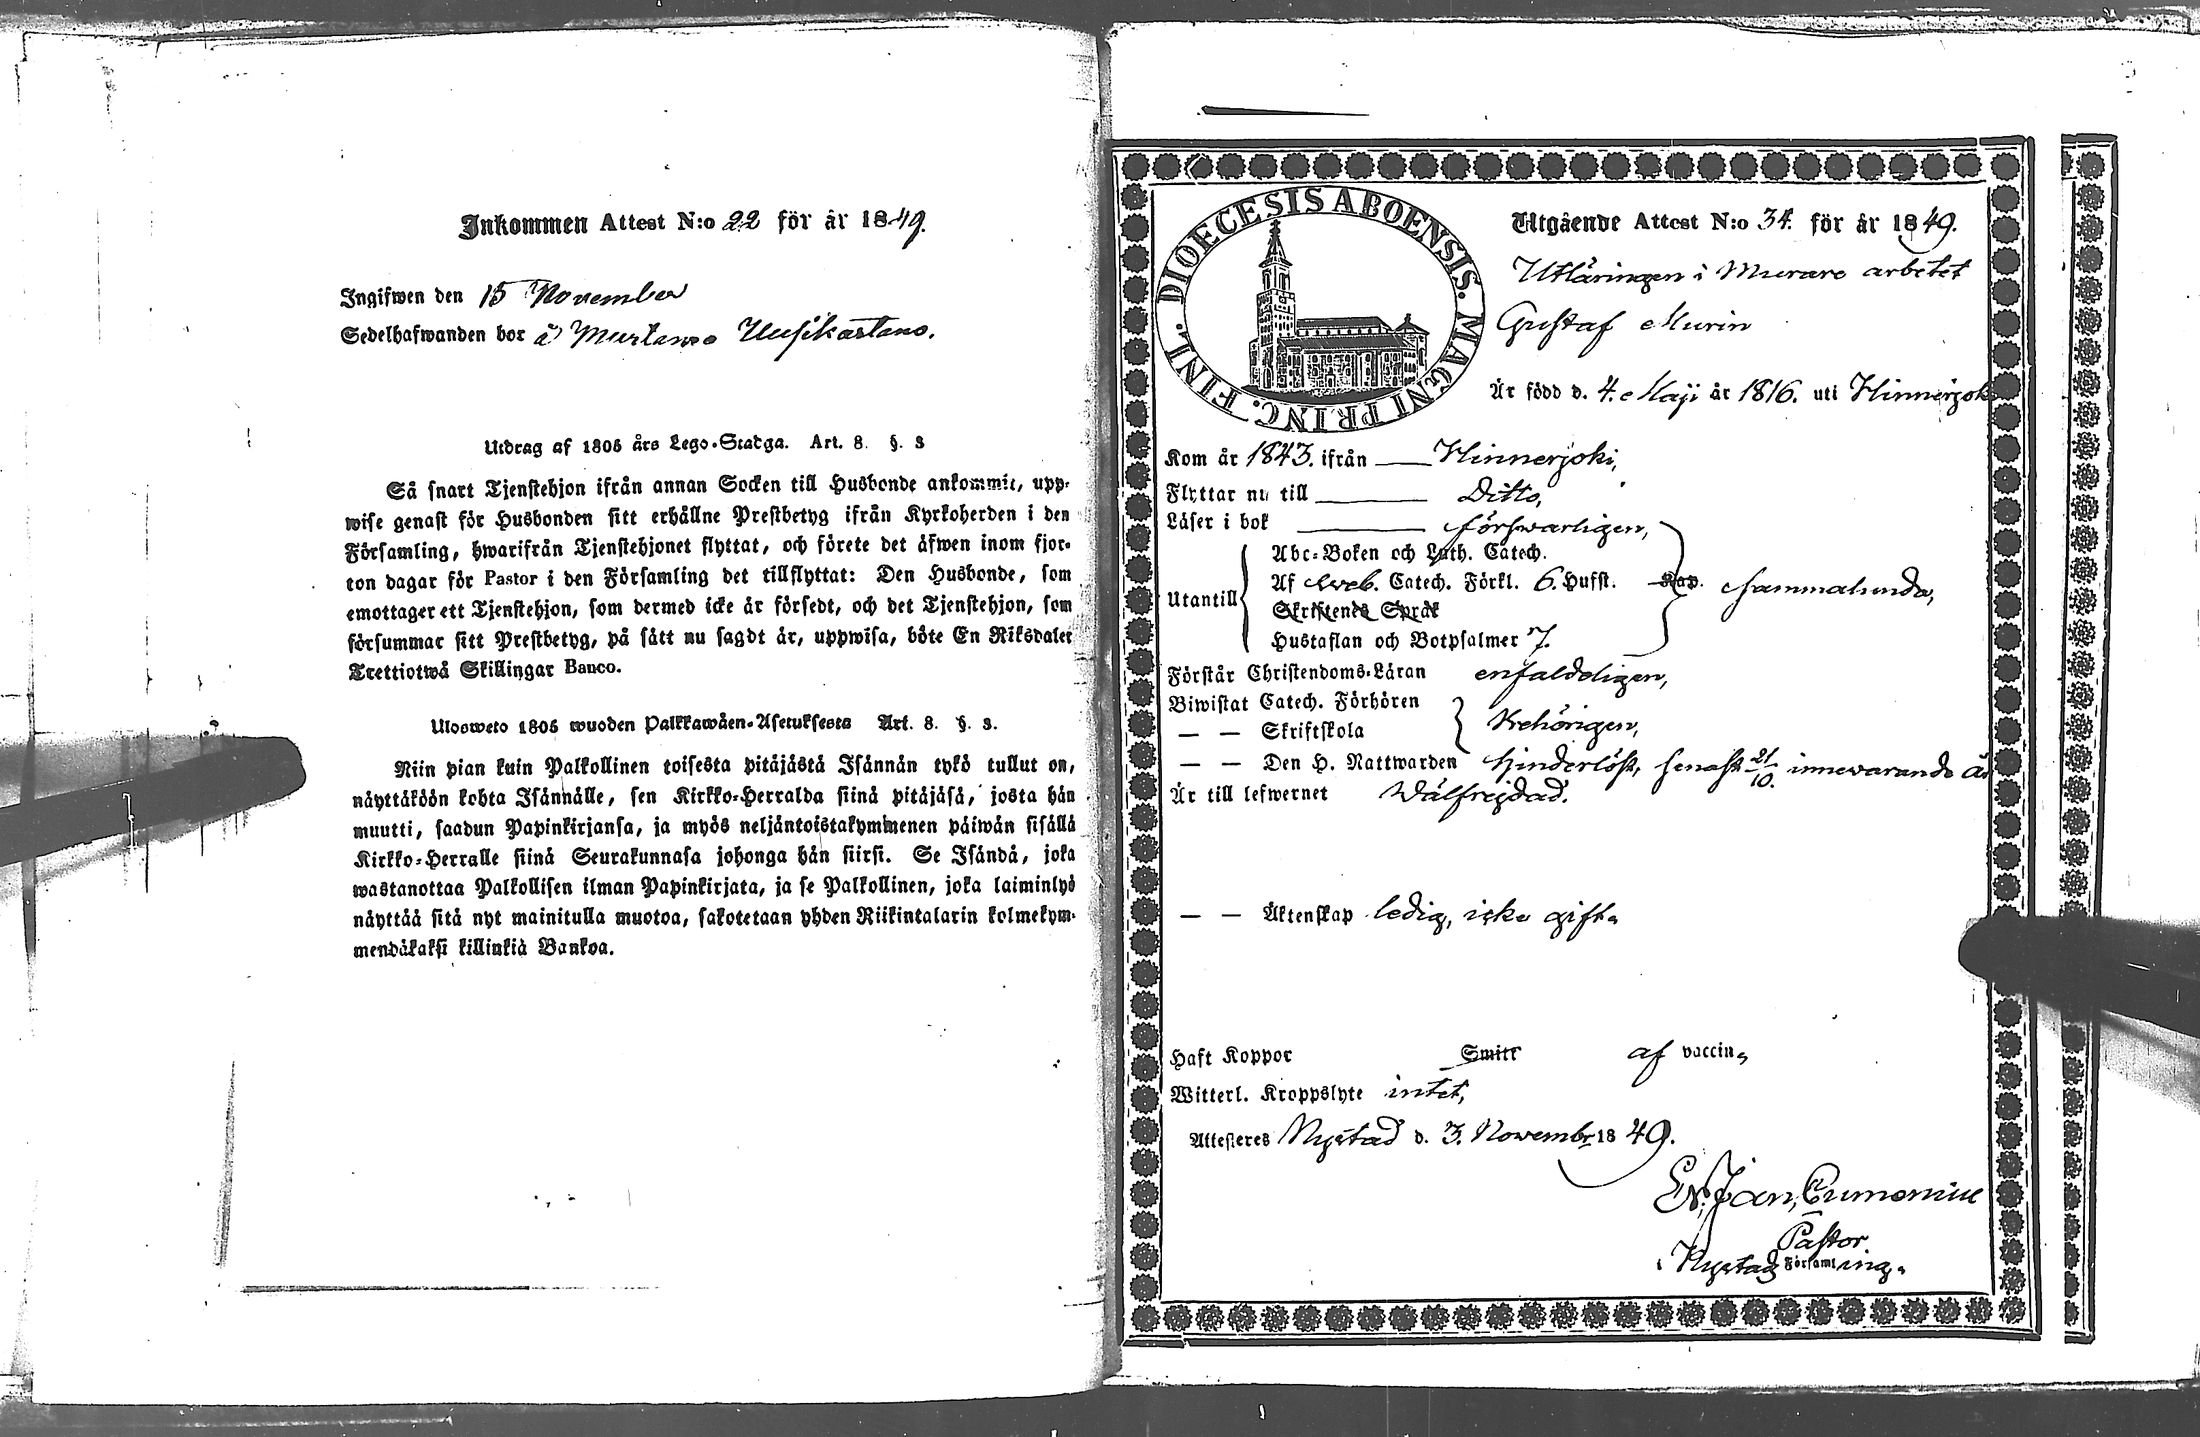 Inkommen Attest N:o 22 för år 1849.
Ingifwen den 15 November
Sedelhafwanden bor å Uusikartano.
Utdrag af 1805 års Lego-Stadga. Art. 8. §. 3
Så snart Tjenstehjon ifrån annan Socken till Husbonde ankommit, upp-
wise genast för Husbonden sitt erhållne Prestbetyg ifrån Kyrkoherden i den
Församling, hwarifrån Tjenstehjonet flyttat, och förete det äfwen inom fjor-
ton dagar för Pastor i den Församling det tillflyttat: Den Husbonde, som
emottager ett Tjenstehjon, som dermed icke är försedt, och det Tjenstehjon, som
försummar sitt Prestbetyg, på sätt nu sagdt är, uppwisa, böte En Riksdaler
Trettiotwå Skillingar Banco.
Ulosweto 1805 wuoden Palkkawäen-Asetuksesta Art. 8. §. 3.
Niin pian kuin Palkollinen toisesta pitäjästä Isännän tykö tullut on,
näyttäköön kohta Isännälle, sen Kirkko-Herralda siinä pitäjäsä, josta hän
muutti, saadun Papinkirjansa, ja myös neljäntoistakymmenen päiwän sisällä
Kirkko-Herralle siinä Seurakunnasa johonga hän siirsi. Se Isändä, joka
wastanottaa Palkollisen ilman Papinkirjata, ja se Palkollinen, joka laiminlyö
näyttää sitä nyt mainitulla muotoa, sakotetaan yhden Riikintalarin kolmekym-
mendäkaksi killinkiä Bankoa.
DIOECESIS ABOENSIS. MAGNI PRINC. FINL.
Utgående Attest N:o 34. för år 1849.
Utläringen i Murare arbetet
Gustaf Murin
Är född d. 4. Maji år 1816. uti Hinnerjok
Kom år 1843. ifrån Hinnerjoki,
Flyttar nu till Ditto,
Läser i bok förswarligen,
Utantill
Abc-Boken och Luth. Catech.
Af Sveb. Catech. Förkl. 6. Hufst. Kap. sammalunda,
Skriftenes Språk
Hustaflan och Botpsalmer 7.
Förstår Christendoms-Läran enfaldeligen,
Biwistat Catech. Förhören
— — Skriftskola behörigen,
— — Den H. Nattwarden hinderlöst, senast 21/10. innewarande År
Är till lefwernet Wälfrejdad.
— — Äktenskap ledig, icke gift.
Haft Koppor Smitt af vaccin,
Witterl. Kroppslyte intet,
Attesteres Nystad d. 3. Novembr 1849.
Pastor
Nystad Församling.